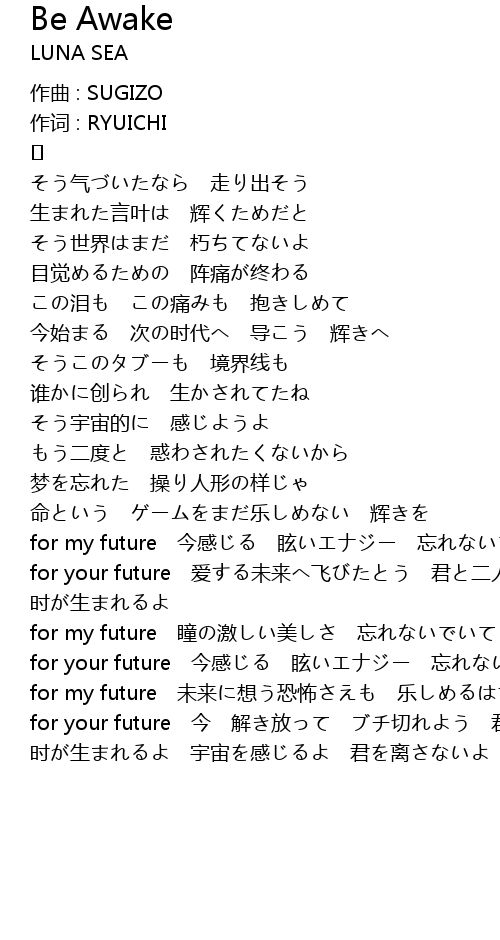 Be Awake
LUNA SEA
作曲 : SUGIZO
作词 : RYUICHI
[]
そう气づいたなら　走り出そう
生まれた言叶は　辉くためだと
そう世界はまだ　朽ちてないよ
目觉めるための　阵痛が终わる
この泪も　この痛みも　抱きしめて
今始まる　次の时代へ　导こう　辉きへ
そうこのタブーも　境界线も
谁かに创られ　生かされてたね
そう宇宙的に　感じようよ
もう二度と　惑わされたくないから
梦を忘れた　操り人形の样じゃ
命という　ゲームをまだ乐しめない　辉きを
for my future　今感じる　眩いエナジー　忘れない
for your future　爱する未来へ飞びたとう　君と二人
时が生まれるよ
for my future　瞳の激しい美しさ　忘れないでいて
for your future　今感じる　眩いエナジー　忘れない
for my future　未来に想う恐怖さえも　乐しめるは
for your future　今　解き放って　ブチ切れよう　君
时が生まれるよ　宇宙を感じるよ　君を离さないよ